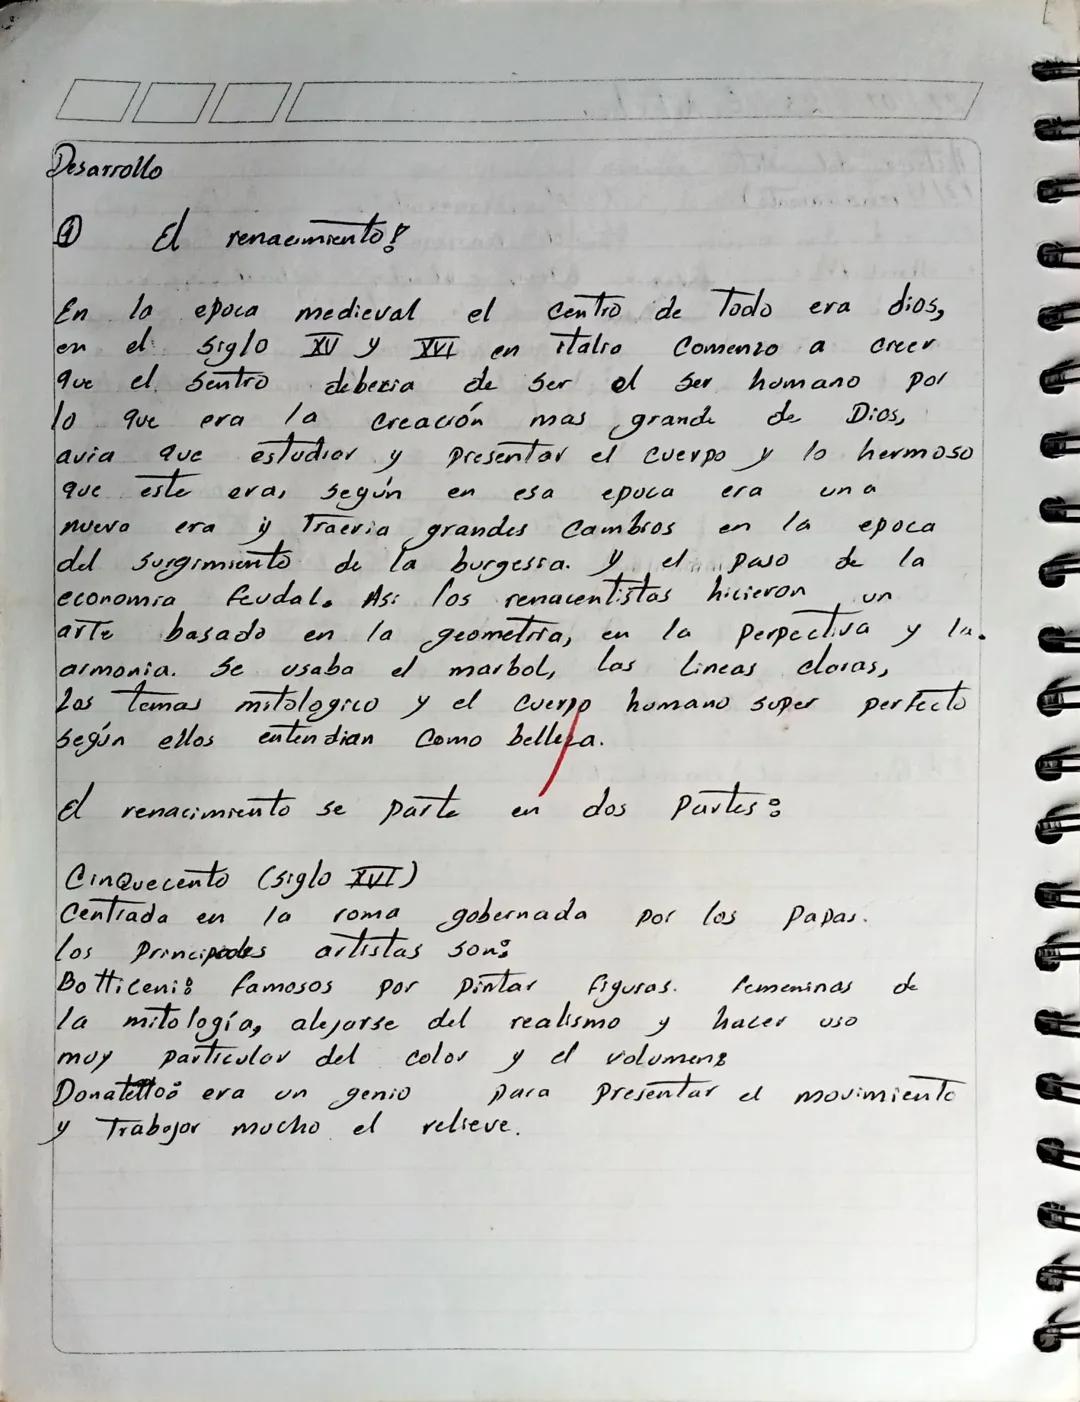 Desarrollo
① El renacimiento:
En la epoca medieval el centro de Todo era dios,
en el siglo XV y XVI en italia Comenzo a creer
que el sentro deberia de ser el ser humano por
lo que era la creación mas grande de Dios,
avia que estudiar y presentar el cuerpo y lo hermoso
que este era, según en esa epoca era una
nueva era y Traeria grandes Cambios en la epoca
del surgimiento de la burgesia. y el paso de la
economia feudal. Asi los renacentistas hicieron un
arte basado en la geometria, en la perpectiva y la
armonia. Se usaba el marbol, las lineas claras,
Los temas mitologico y el cuerpo humano super perfecto
según ellos entendian Como belleza.
El renacimiento se parte en dos Partes:
CinQuecento (siglo XVI)
Centrada en la roma gobernada por los Papas.
los Principales artistas son:
Botticeni: famosos por pintar figuras. femeninas de
la mitología, alejarse del realismo y hacer uso
muy particular del color y el volumen:
Donatello: era un genio para Presentar el movimiento
y Trabajar mucho el relieve.